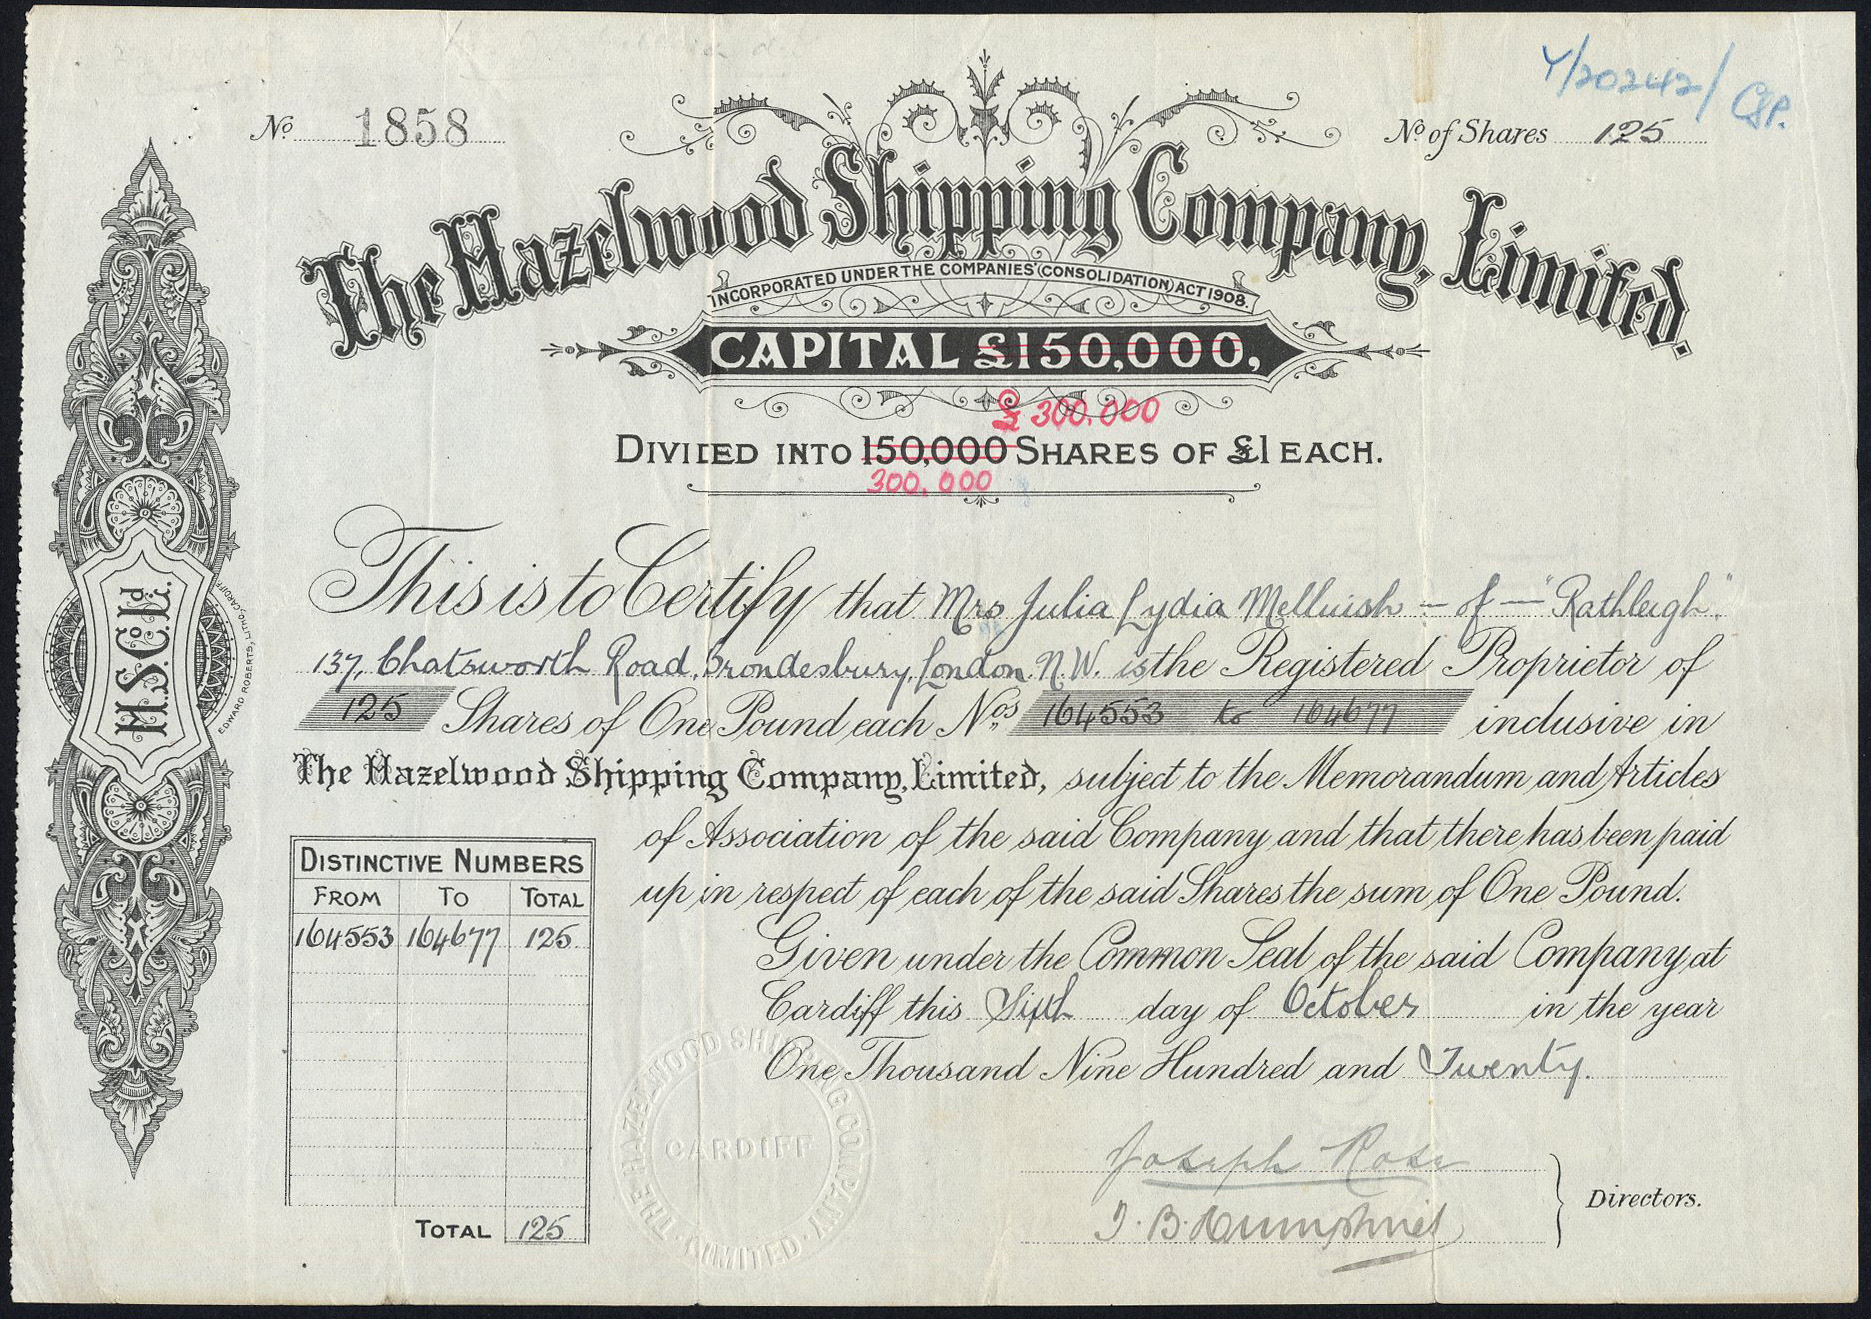 Y/20242/
No. 1858
No. of Shares 125
The Hazelwood Shipping Company, Limited.
INCORPORATED UNDER THE COMPANIES' (CONSOLIDATION) ACT 1908.
CAPITAL £150,000,
£ 300,000
DIVIDED INTO 150,000 SHARES OF £1 EACH.
300,000
This is to Certify that Mrs Julia Lydia Melluish - of - "Rathleigh"
137, Chatsworth Road, Brondesbury, London, N.W. is the Registered Proprietor of
125 Shares of One Pound each Nos. 164553 to 164677 inclusive in
The Hazelwood Shipping Company, Limited, subject to the Memorandum and Articles
of Association of the said Company and that there has been paid
up in respect of each of the said Shares the sum of One Pound.
Given under the Common Seal of the said Company at
Cardiff this Sixth day of October in the year
One Thousand Nine Hundred and Twenty.
DISTINCTIVE NUMBERS
FROM TO TOTAL
164553 164677 125
TOTAL 125
THE HAZELWOOD SHIPPING COMPANY LIMITED
CARDIFF
Joseph Rose
J. B. Humphries
Directors.
H.S.Co. Ld.
EDWARD ROBERTS, LITHO, CARDIFF